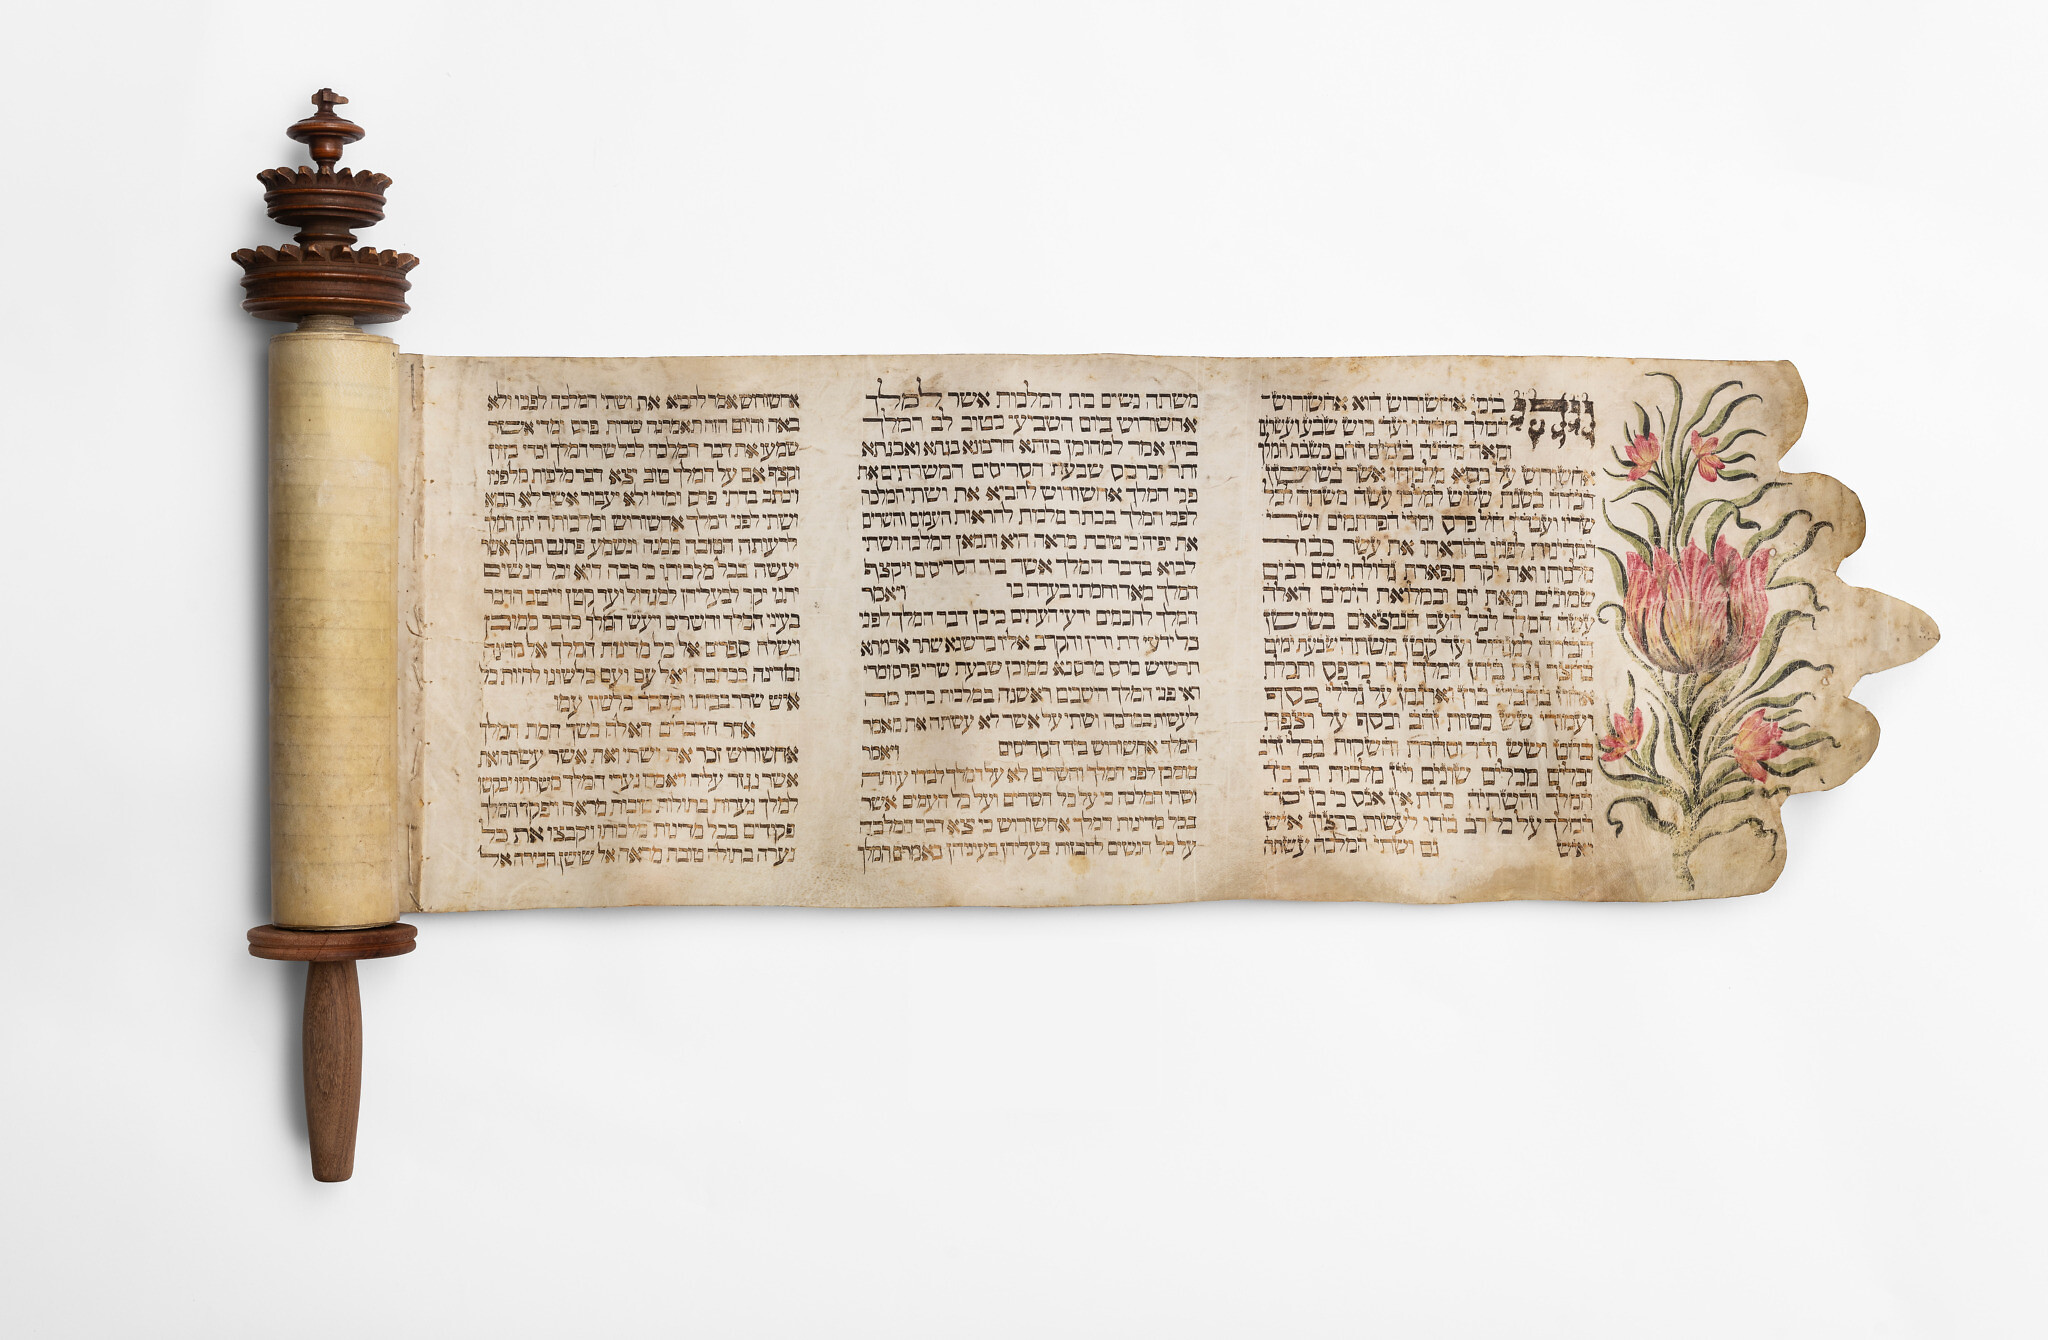 ויהי בימי אחשורוש הוא אחשורוש
המלך מהדו ועד כוש שבע ועשרים
ומאה מדינה בימים ההם כשבת המלך
אחשורוש על כסא מלכותו אשר בשושן
הבירה בשנת שלוש למלכו עשה משתה לכל
שריו ועבדיו חיל פרס ומדי הפרתמים ושרי
המדינות לפניו בהראתו את עשר כבוד
מלכותו ואת יקר תפארת גדולתו ימים רבים
שמונים ומאת יום ובמלואת הימים האלה
עשה המלך לכל העם הנמצאים בשושן
הבירה למגדול ועד קטן משתה שבעת ימים
בחצר גנת ביתן המלך חור כרפס ותכלת
אחוז בחבלי בוץ וארגמן על גלילי כסף
ועמודי שש מטות זהב וכסף על רצפת
בהט ושש ודר וסחרת והשקות בכלי זהב
וכלים מכלים שונים ויין מלכות רב כיד
המלך והשתיה כדת אין אנס כי כן יסד
המלך על כל רב ביתו לעשות כרצון איש
ואיש גם ושתי המלכה עשתה
משתה נשים בית המלכות אשר למלך
אחשורוש ביום השביעי כטוב לב המלך
ביין אמר למהומן בזתא חרבונא בגתא ואבגתא
זתר וכרכס שבעת הסריסים המשרתים את
פני המלך אחשורוש להביא את ושתי המלכה
לפני המלך בכתר מלכות להראות העמים והשרים
את יפיה כי טובת מראה היא ותמאן המלכה ושתי
לבוא בדבר המלך אשר ביד הסריסים ויקצף
המלך מאד וחמתו בערה בו ויאמר
המלך לחכמים ידעי העתים כי כן דבר המלך לפני
כל ידעי דת ודין והקרב אליו כרשנא שתר אדמתא
תרשיש מרס מרסנא ממוכן שבעת שרי פרס ומדי
ראי פני המלך הישבים ראשנה במלכות כדת מה
לעשות במלכה ושתי על אשר לא עשתה את מאמר
המלך אחשורוש ביד הסריסים ויאמר
ממוכן לפני המלך והשרים לא על המלך לבדו עותה
ושתי המלכה כי על כל השרים ועל כל העמים אשר
בכל מדינות המלך אחשורוש כי יצא דבר המלכה
על כל הנשים להבזות בעליהן בעיניהן באמרם המלך
אחשורוש אמר להביא את ושתי המלכה לפניו ולא
באה והיום הזה תאמרנה שרות פרס ומדי אשר
שמעו את דבר המלכה לכל שרי המלך וכדי בזיון
וקצף אם על המלך טוב יצא דבר מלכות מלפניו
ויכתב בדתי פרס ומדי ולא יעבור אשר לא תבא
ושתי לפני המלך אחשורוש ומלכותה יתן המלך
לרעותה הטובה ממנה ונשמע פתגם המלך אשר
יעשה בכל מלכותו כי רבה היא וכל הנשים
יתנו יקר לבעליהן למגדול ועד קטן וייטב הדבר
בעיני המלך והשרים ויעש המלך כדבר ממוכן
וישלח ספרים אל כל מדינות המלך אל מדינה
ומדינה ככתבה ואל עם ועם כלשונו להיות כל
איש שרר בביתו ומדבר כלשון עמו
אחר הדברים האלה כשך חמת המלך
אחשורוש זכר את ושתי ואת אשר עשתה ואת
אשר נגזר עליה ויאמרו נערי המלך משרתיו יבקשו
למלך נערות בתולות טובות מראה ויפקד המלך
פקידים בכל מדינות מלכותו ויקבצו את כל
נערה בתולה טובת מראה אל שושן הבירה אל